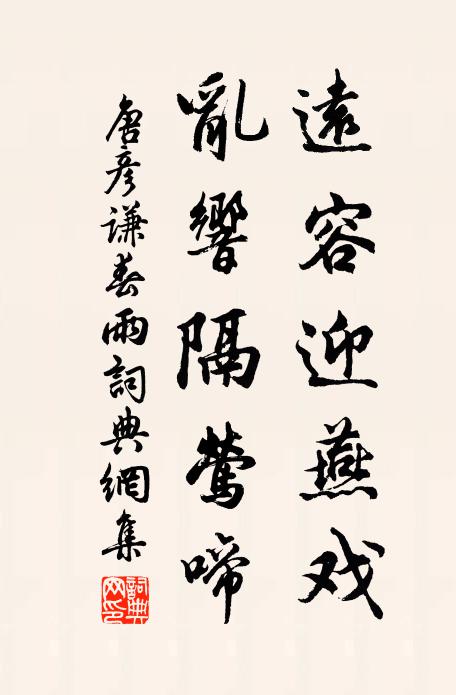 遠容迎燕戏
亂響隔鶯啼
唐彦謙春雨詞典網集
詞典網印